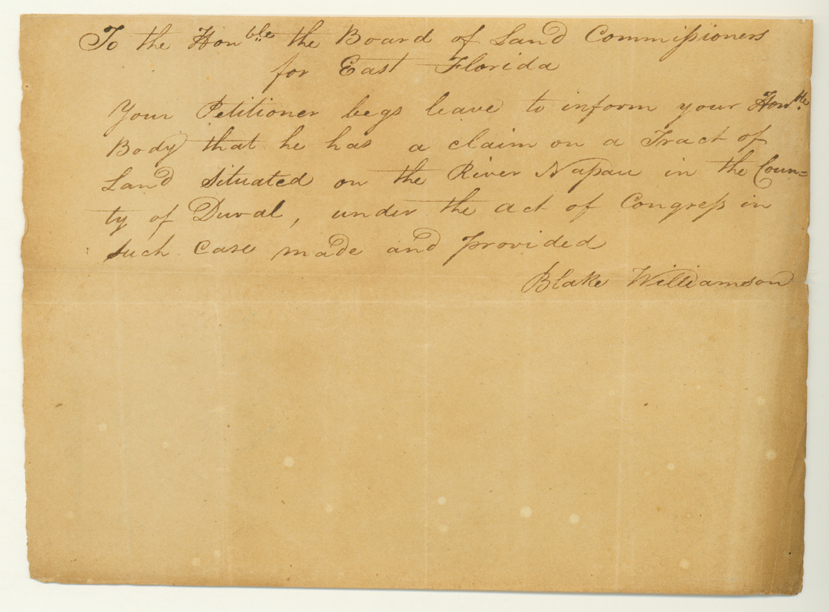 To the Hon.bles the Board of Land Commissioners
for East Florida
Your Petitioner begs leave to inform your Hon.ble
Body that he has a claim on a Tract of
Land Situated on the River Nassau in the Coun=
ty of Duval, under the act of Congress in
such case made and provided
Blake Williamson